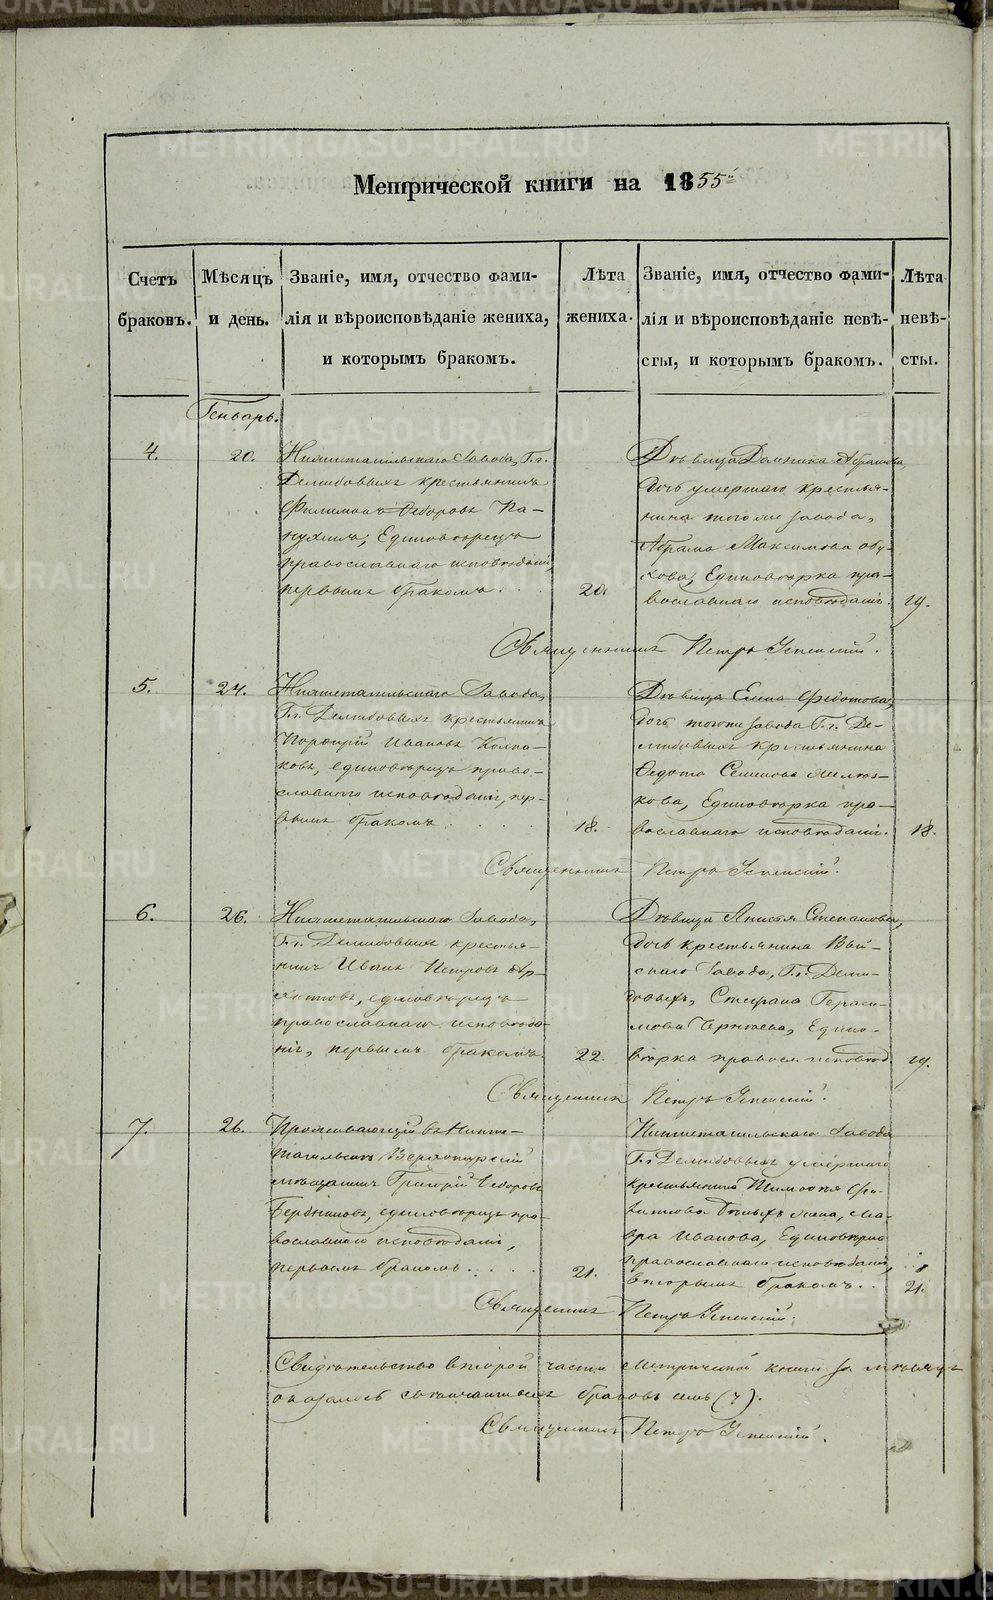 Метрической книги на 1855й
Счетъ браковъ.
Мѣсяцъ и день.
Званіе, имя, отчество фами-
лія и вѣроисповѣданіе жениха,
и которымъ бракомъ.
Лѣта
жениха.
Званіе, имя, отчество фами-
лія и вѣроисповѣданіе невѣ-
сты, и которымъ бракомъ.
Лѣта
невѣ-
сты.
Генварь.
4.
20.
Нижнетагильскаго Завода, Г.г.
Демидовыхъ крестьянинъ
Филимонъ Ѳедоровъ Па-
нухинъ, Единовѣрецъ
православнаго исповѣданія,
первымъ бракомъ . . .
20.
Дѣвица Домника Абрамова,
дочь умершаго крестья-
нина того же завода,
Абрама Максимова Обу-
хова, Единовѣрка пра-
вославнаго исповѣданія.
19.
Священникъ Петръ Успенскій.
5.
24.
Нижнетагильскаго Завода,
Г.г. Демидовыхъ крестьянинъ
Порфирій Ивановъ Колпа-
ковъ, единовѣрецъ право-
славнаго исповѣданія, пер-
вымъ бракомъ . . . .
18.
Дѣвица Елена Федотова,
дочь тогоже завода Г.г. Де-
мидовыхъ крестьянина
Ѳедота Семенова
кова, Единовѣрка пра-
вославнаго исповѣданія.
18.
Священникъ Петръ Успенскій.
6.
26.
Нижнетагильскаго Завода,
Г.г. Демидовыхъ крестья-
нинъ Иванъ Петровъ
единовѣрецъ
православнаго исповѣда-
нія, первымъ бракомъ
22.
Дѣвица Анисья Степанова,
дочь крестьянина Вый-
скаго Завода, Г.г. Деми-
довыхъ, Стефана Гераси-
мова Едино-
вѣрка правосл. исповѣд.
19.
Священникъ Петръ Успенскій.
7.
26.
Проживающій въ Нижне-
тагильскѣ Верхотурскій
мѣщанинъ Григорій Ѳедоровъ
Бердниковъ, единовѣрецъ пра-
вославнаго исповѣданія,
первымъ бракомъ . . . .
21.
Нижнетагильскаго Завода
Г.г. Демидовыхъ умершаго
крестьянина Тимофея
Бѣлыхъ жена, Мав-
ра Иванова, Единовѣрка
православнаго исповѣданія,
вторымъ бракомъ . .
21.
Священникъ Петръ Успенскій.
Свидѣтельство второй части метрической книги за мѣсяцъ
оказалось бракосочетавшихся браковъ семь (7).
Священникъ Петръ Успенскій.
METRIKI.GASO-URAL.RU